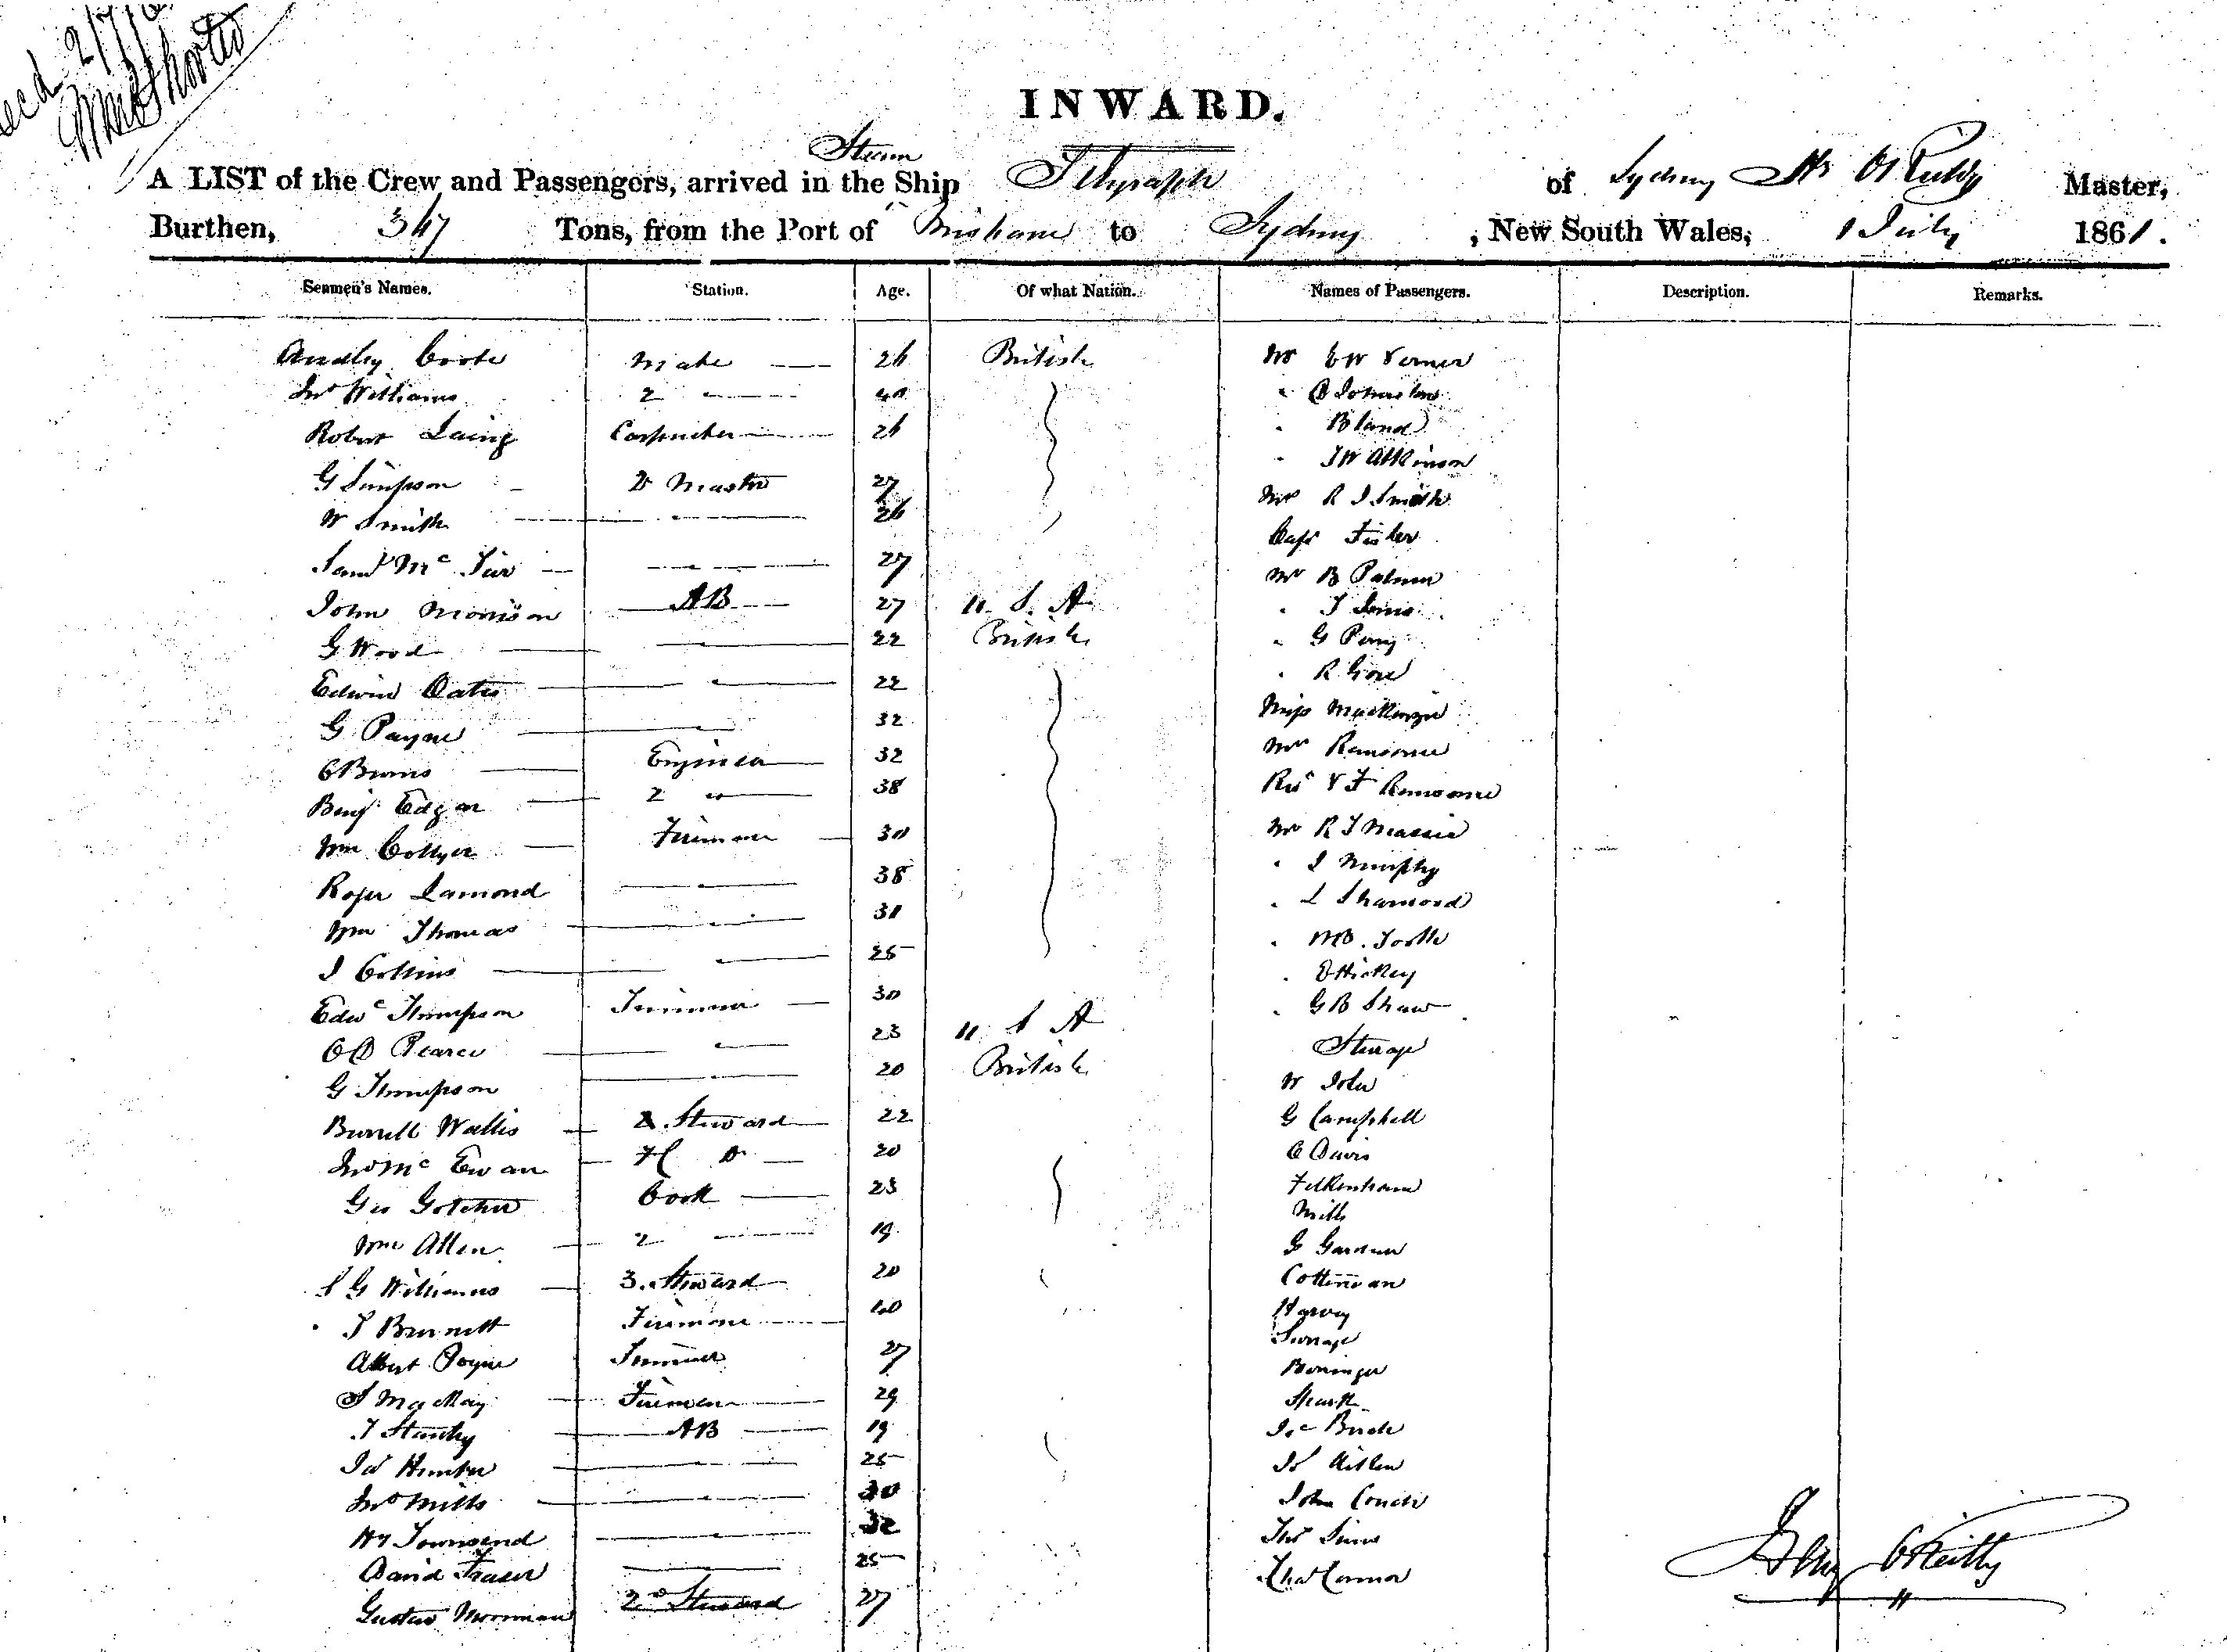 INWARD.
Steam
A LIST of the Crew and Passengers, arrived in the Ship Telegraph of Sydney Hy O'Reilly Master,
Burthen, 367 Tons, from the Port of Brisbane to Sydney , New South Wales, 1 July 1861.
Seamen's Names. Station. Age. Of what Nation. Names of Passengers. Description. Remarks.
Audley Coote Mate 26 British Mr E W Verner
Jno Williams 2 " 40 " Johnston
Robert Laing Carpenter 26 " Bland
G Simpson Qr Master 27 " J W Atkinson
W Smith " 26 Mr R J Smith
Saml Mc " 27 Capt Fisher
John Morrison AB 27 U. S. A Mr B Palmer
G Wood " 22 British " T Ivins
Edwin Oates " 22 " G Perry
G Payne " 32 " R Gore
C Burns Engineer 32 Miss MacKenzie
Benj Edgar 2 " 38 Mrs Ransome
Wm Collyer Fireman 30 Revd V F Ransome
Roger Lamond " 38 Mr R J Massie
Wm Thomas " 31 " J Murphy
J Collins " 25 " L
Edwd Thompson Trimmer 30 " Tooth
Pearce " 23 U. S A " E Hickey
G Thompson " 20 British " G B Shaw
Burrell Wallis 2 Steward 22 Steerage
Jno Mc Ewan 20 W
Geo Gotcher Cook 23 G Campbell
Wm Allen 2 " 19 C Davis
S G Williams 3. Steward 20 Mills
T Burnett Fireman 40 G Gardner
Albert Payne Trimmer 27 Cottingan
MacKay Fireman 29 Harvey
T Stanley AB 19
Jas Hunter " 25
Jno Mills " 30 Jas Aitken
Hy Townsend " 32 John Couch
David Fraser " 25 Thos Sims
Gustav Moorman 2d Steward 27 Chas Connor
Henry O'Reilly